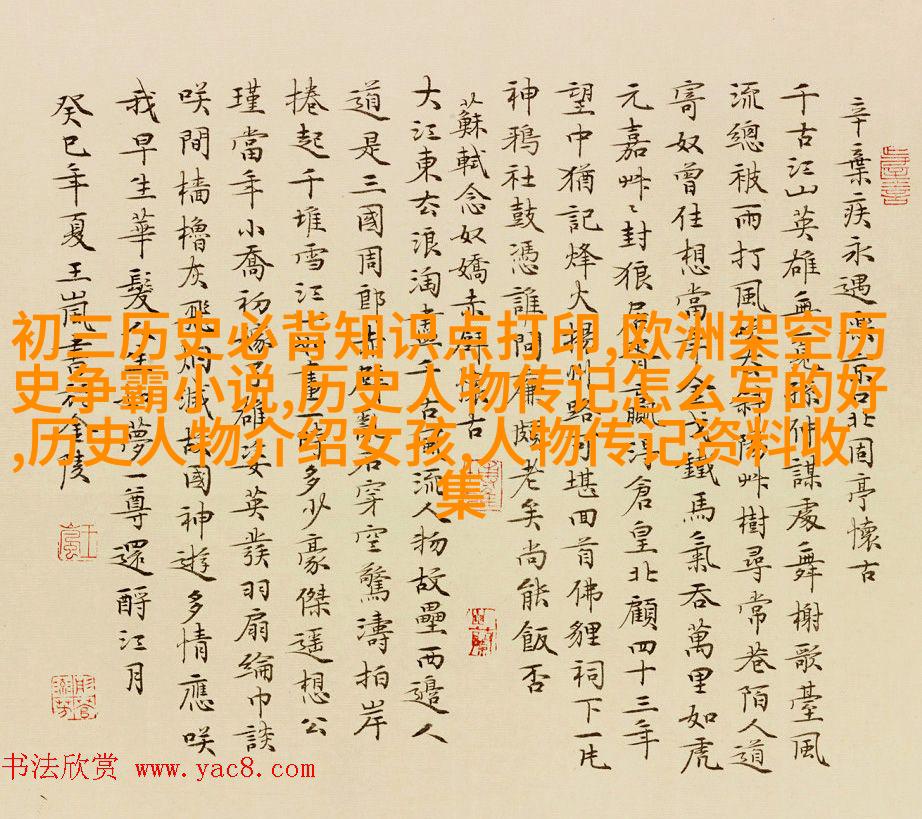 辛棄疾永遇樂京口北固亭懷古
千古江山英雄無覓孫仲謀處舞榭歌臺風
流總被雨打風吹去斜陽艸樹尋常巷陌人道
寄奴曾住想當年金戈鐵馬氣吞萬里如虎
元嘉艸〻封狼居胥贏得倉皇北顧四十三年
望中猶記烽火揚州路可堪回首佛貍祠下一片
神鴉社鼓憑誰問廉頗老矣尚能飯否
蘇軾念奴嬌赤壁懷古
大江東去浪淘盡千古風流人物故壘西邊人
道是三國周郎赤壁亂石穿空驚濤拍岸
捲起千堆雪江山如畫一時多少豪傑遥想公
瑾當年小喬初嫁了雄姿英發羽扇綸巾談
咲間檣櫓灰飛煙滅故國神遊多情應咲
我早生華髮人生如夢一尊還酹江月
癸巳年夏王嵐書於金陵
初三历史必背知识点打印,欧洲架空历
史争霸小说,历史人物传记怎么写的好
,历史人物介绍女孩,人物传记资料收
集
书法欣赏 www.yac8.com